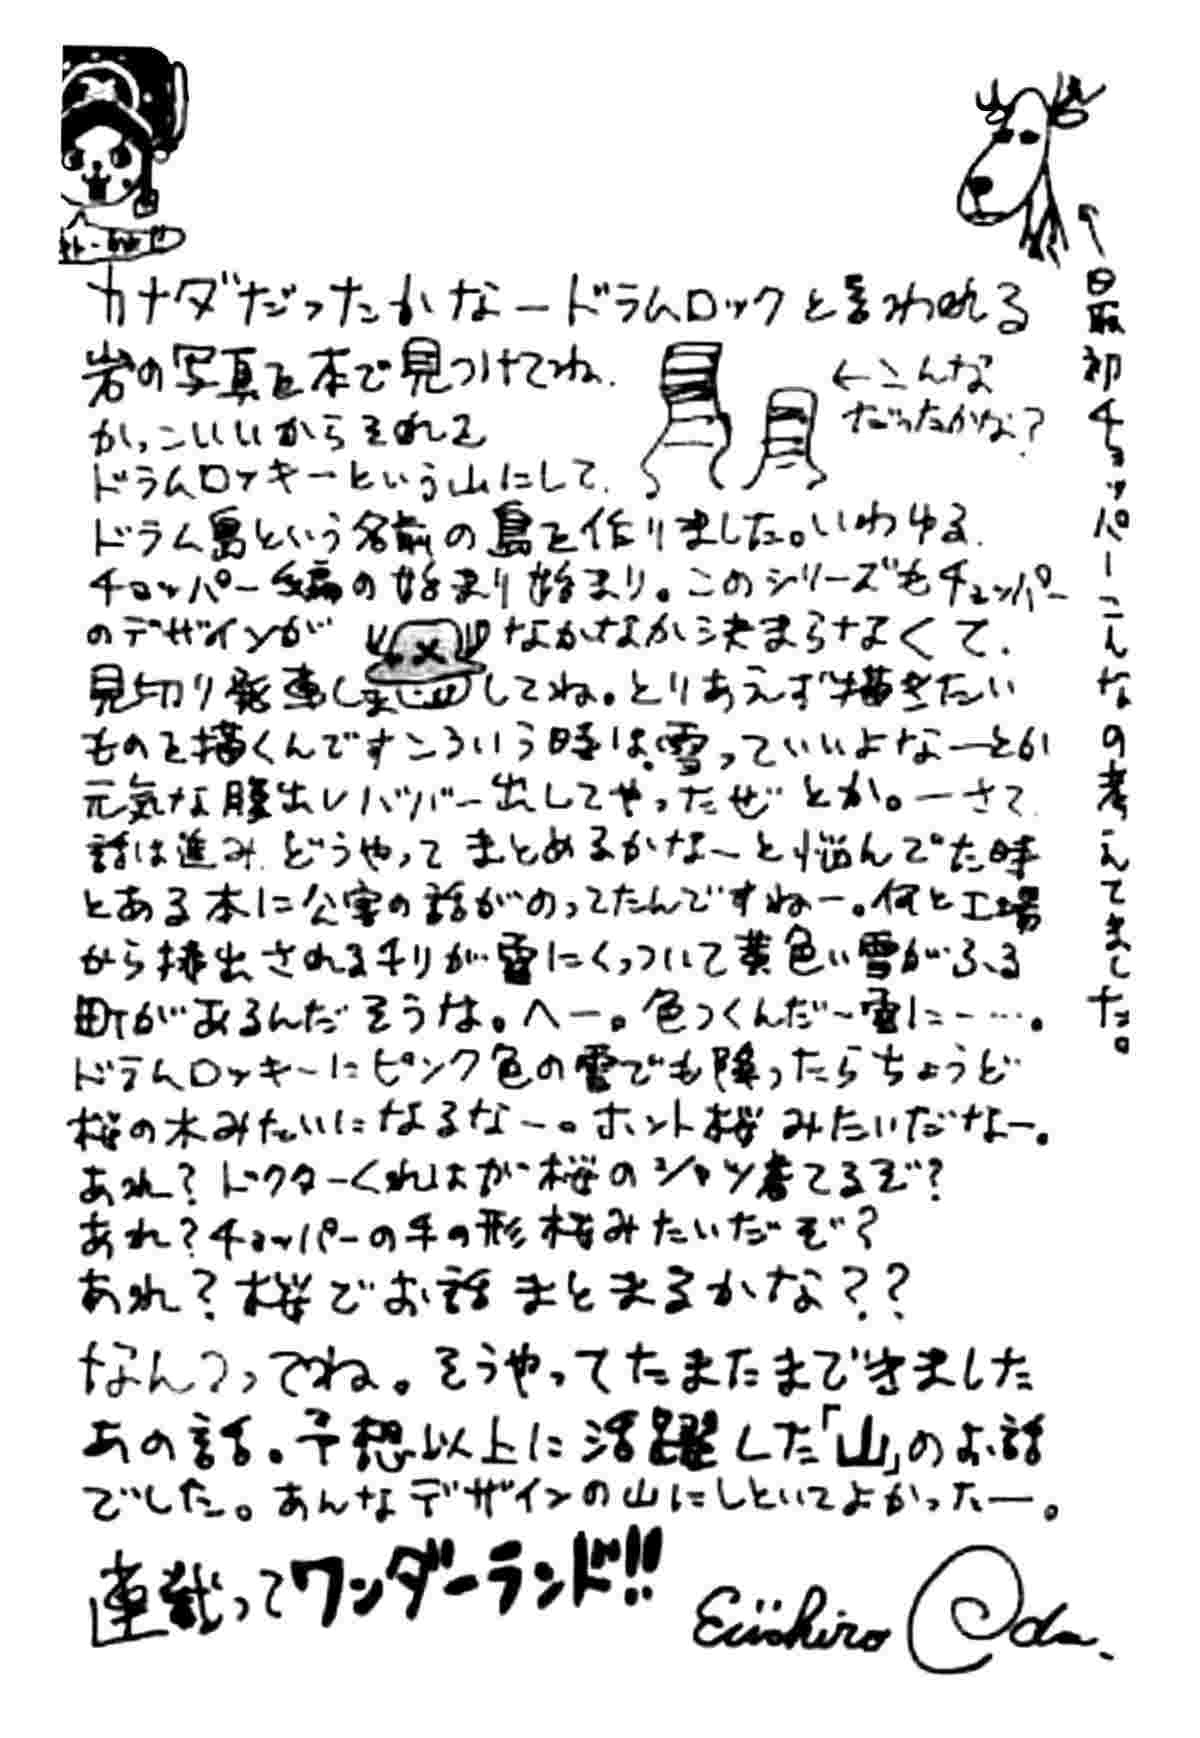 カナダだったかなードラムロックと言われる
岩の写真を本で見つけてね.
←こんな
だったかな?
かっこいいからそれを
ドラムロッキーという山にして.
ドラム島という名前の島を作りました。いわゆる.
チョッパー編の始まり始まり。このシリーズもチョッパー
のデザインが なかなか決まらなくて.
見切り発車しましてね。とりあえず描きたい
ものを描くんですこういう時は.雪っていいよなーとか
元気な腹出しババー出してやったぜとか。ーさて.
話は進み.どうやってまとめるかな〜と悩んでた時
とある本に公害の話がのってたんですねー。何と工場
から排出されるチリが雪にくっついて黄色い雪がふる
町があるんだそうな。へー。色つくんだ〜雪にー…。
ドラムロッキーにピンク色の雪でも降ったらちょうど
桜の木みたいになるなー。ホント桜みたいだなー。
あれ?ドクターくれはが桜のシャツ着てるぞ?
あれ?チョッパーの手の形桜みたいだぞ?
あれ?桜でお話まとまるかな??
なんつってね。そうやってたまたまできました
あの話。予想以上に活躍した「山」のお話
でした。あんなデザインの山にしといてよかったー。
連載ってワンダーランド!!
Eiichiro Oda.
↑最初チョッパーこんなの考えてました。